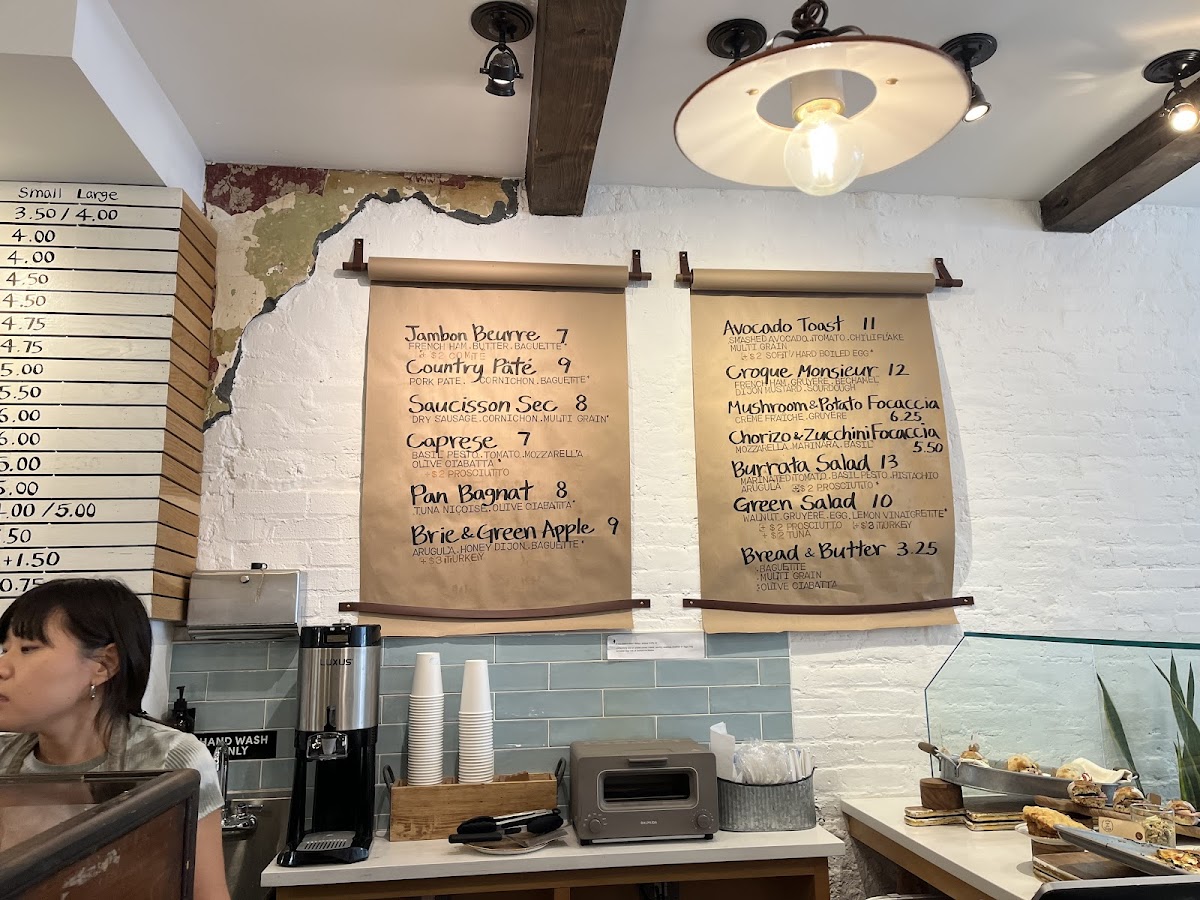 Small Large
3.50 / 4.00
4.00
4.00
4.50
4.50
4.75
4.75
5.00
5.50
6.00
6.00
5.00
5.00
.00 / 5.00
.50
+1.50
0.75
Jambon Beurre 7
FRENCH HAM. BUTTER. BAGUETTE*
+$2 COMTE
Country Pâté 9
PORK PATE. CORNICHON. BAGUETTE*
Saucisson Sec 8
DRY SAUSAGE. CORNICHON. MULTI GRAIN*
Caprese 7
BASIL PESTO. TOMATO. MOZZARELLA
OLIVE CIABATTA*
+$2 PROSCIUTTO
Pan Bagnat 8
TUNA NICOISE. OLIVE CIABATTA*
Brie & Green Apple 9
ARUGULA. HONEY DIJON. BAGUETTE*
+$3 TURKEY
Avocado Toast 11
SMASHED AVOCADO. TOMATO. CHILI FLAKE
MULTI GRAIN
+$2 SOFT/HARD BOILED EGG*
Croque Monsieur 12
FRENCH HAM. GRUYERE. BECHAMEL
DIJON MUSTARD. SOURDOUGH
Mushroom & Potato Focaccia
CREME FRAICHE. GRUYERE 6.25
Chorizo & Zucchini Focaccia
MOZZARELLA. MARINARA. BASIL 5.50
Burrata Salad 13
MARINATED TOMATO. BASIL PESTO. PISTACHIO
ARUGULA +$2 PROSCIUTTO*
Green Salad 10
WALNUT. GRUYERE. EGG. LEMON VINAIGRETTE*
+$2 PROSCIUTTO +$3 TURKEY
+$2 TUNA
Bread & Butter 3.25
BAGUETTE
MULTI GRAIN
OLIVE CIABATTA
LUXUS
HAND WASH
ONLY